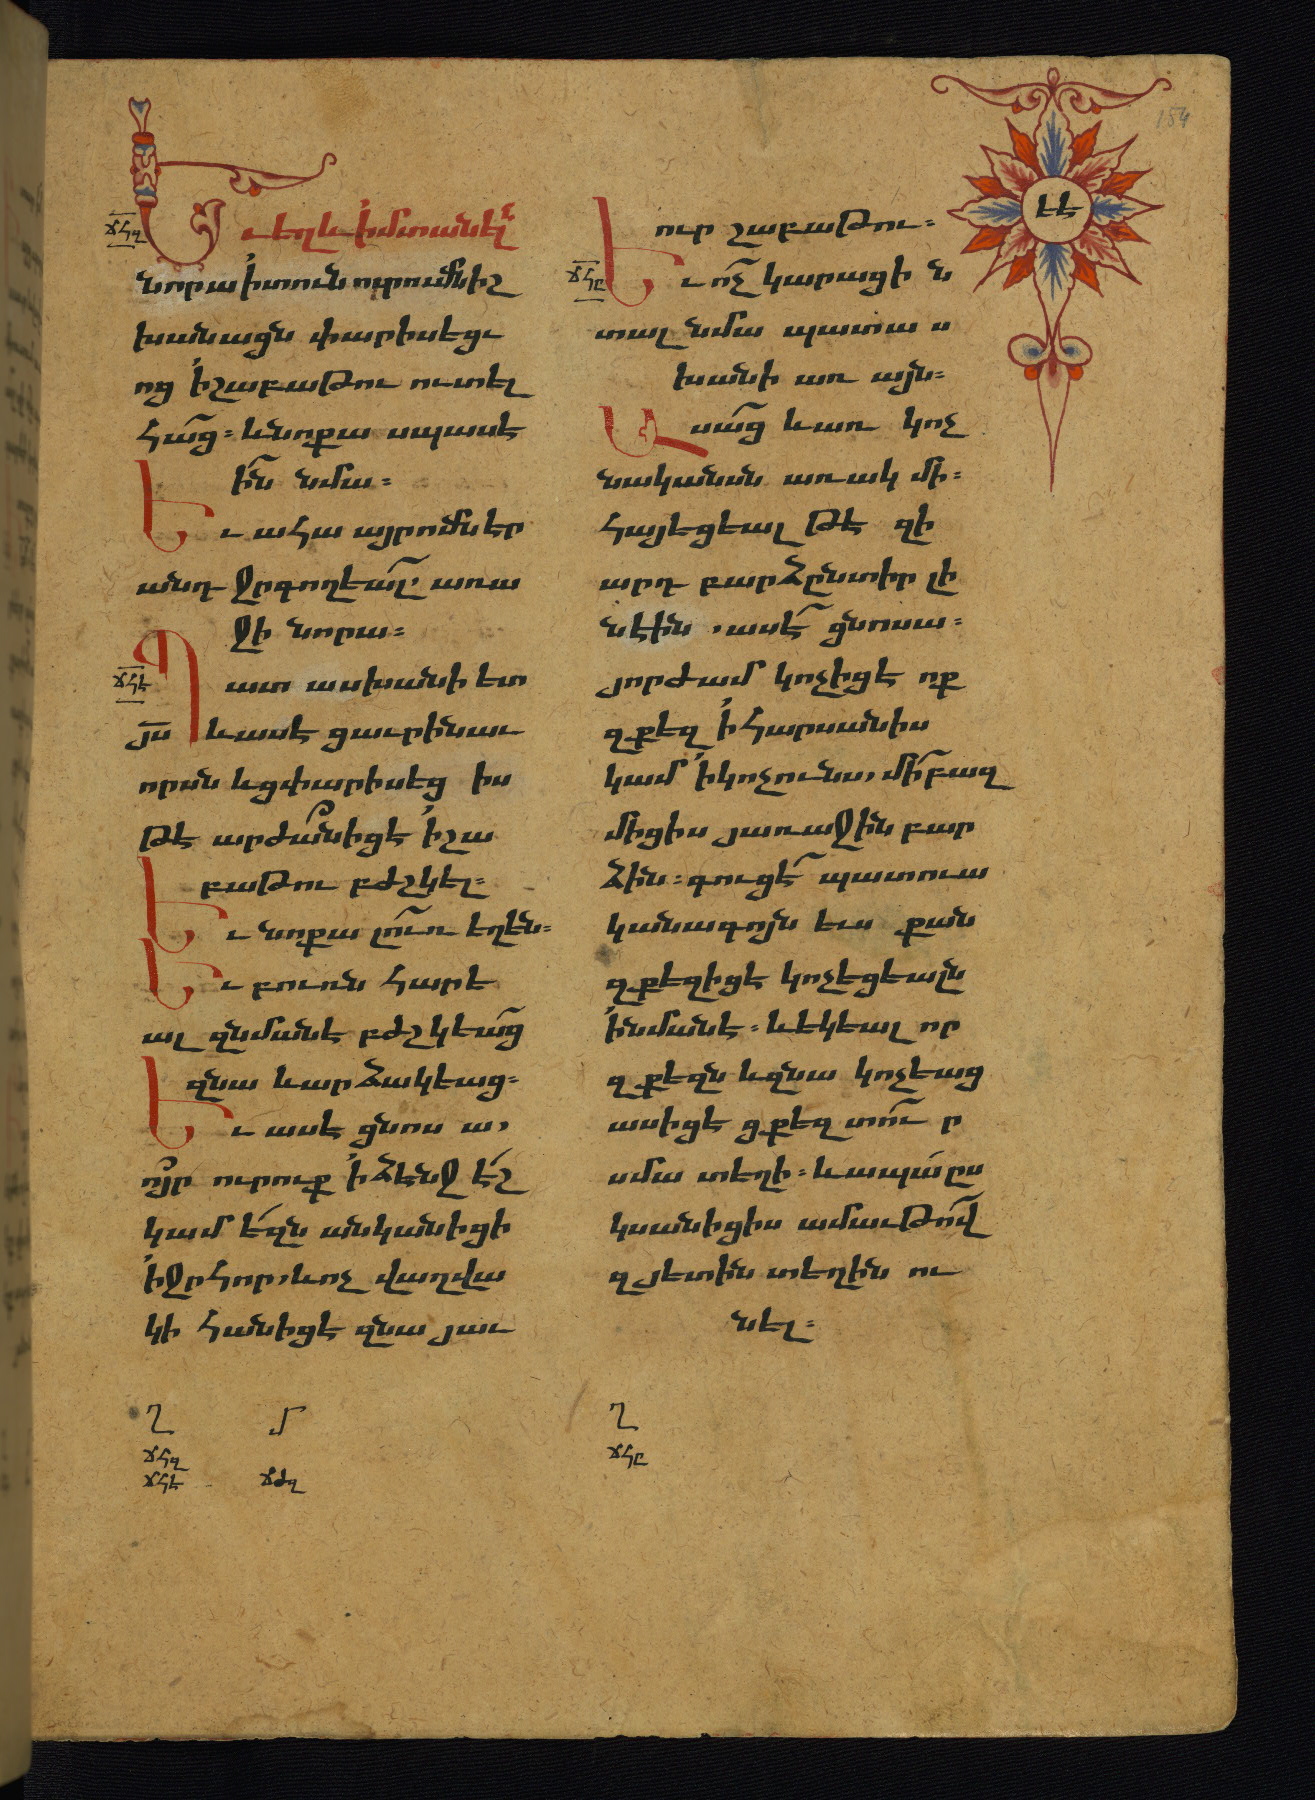 154
էէ
ճհզ
Եւ եղև ի մտանել
նորա ի տուն ուրումն իշ
խանացն փարիսեցւ
ոց ի շաբաթու ուտել
հաց։ և նոքա սպասէ
ին նմա։
Եւ ահա այր ոմն էր
անդ ջրգողեալ՝ առա
ջի նորա։
ճհէ
Պատասխանի ետ
յս և ասէ ցաւրինաւ
որսն և ցփարիսեց իս
թէ արժան իցէ ի շա
բաթու բժշկել։
Եւ նոքա լուռ եղեն։
Եւ բուռն հարե
ալ զնմանէ բժշկեաց
զնա և արձակեաց։
Եւ ասէ ցնոսա,
ոյր ուրուք ի ձէնջ էշ
կամ եզն անկանիցի
ի ջրհոր, և ոչ վաղվա
կի հանիցէ զնա յաւ
ուր շաբաթու։
ճհը
Եւ ոչ կարացի ն
տալ նմա պատա ս
խանի առ այն։
Ասաց և առ կոչ
նականսն առակ մի։
հայեցեալ թէ զի
արդ բարձընտիր լի
նէին, ասէ ցնոսա։
յորժամ կոչիցէ ոք
զքեզ ի հարսանիս
կամ ի կոչունս, մի բազ
միցիս յառաջին բար
ձին։ գուցէ պատուա
կանագոյն ևս քան
զքեզ իցէ կոչեցեալն
ի նմանէ։ և եկեալ որ
զքեզն և զնա կոչեաց
ասիցէ ցքեզ տուր ը
սմա տեղի։ և ապա ըս
կսանիցիս ամաւթով
զյետին տեղին ու
նել։
Ղ
ճհզ
ճհէ
Մ
ճժզ
Ղ
ճհը